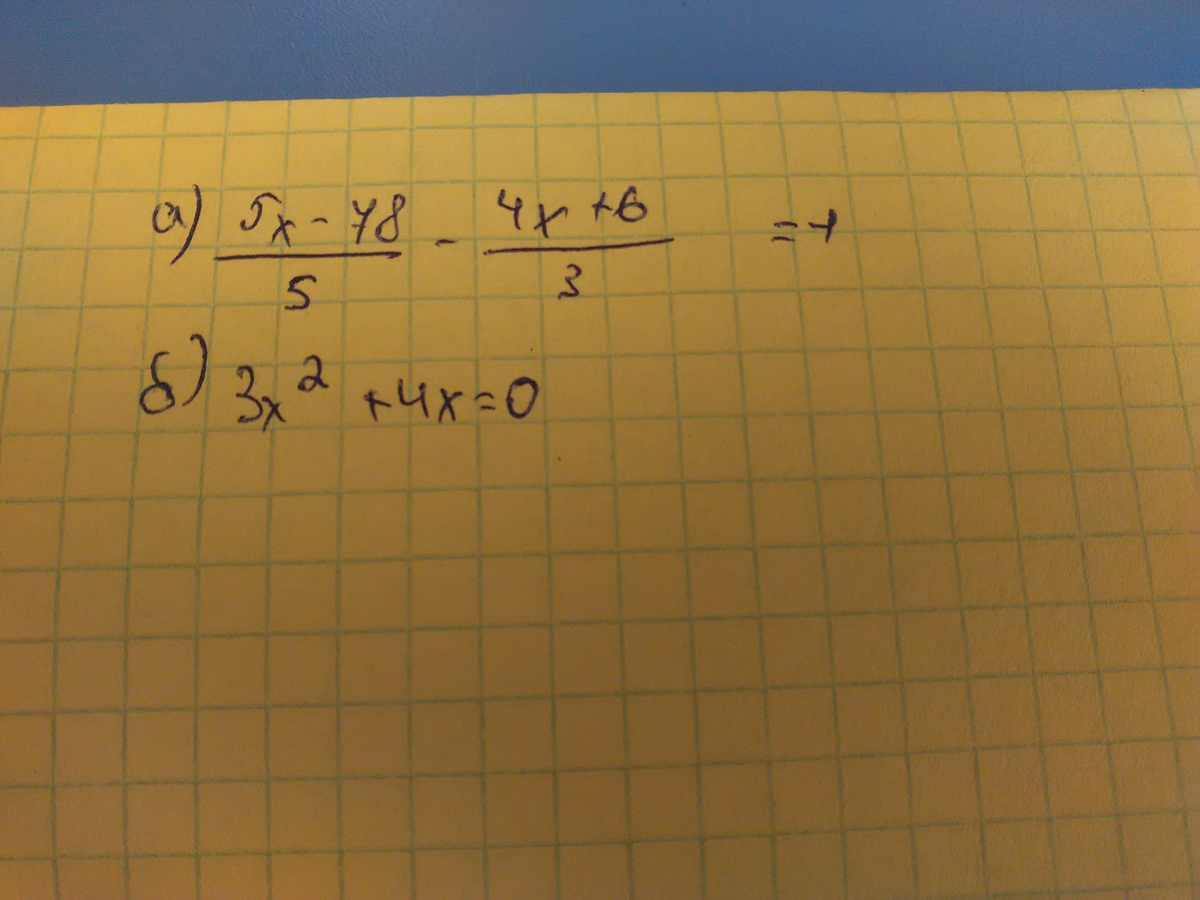 а) (5x - 78)/5 - (4x + 6)/3 = -1
б) 3x² + 4x = 0